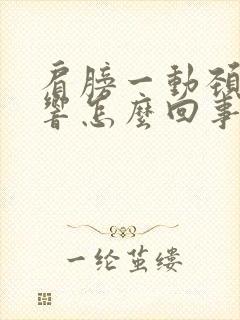 肩膀一動頚
響怎麼回事
一纶茧缕